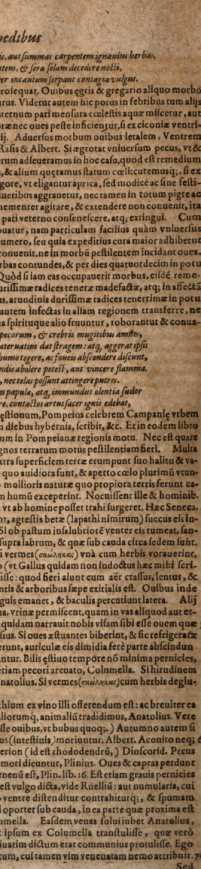 pedibus
is, aut summas carpentem ignavius herbas,
tem, & sera solam decedere nocti,
per incautum serpant contagia vulgus.
rosequar. Ouibus egris & gregario aliquo morbo
tur. Viderut autem hic porcis in febribus tum alijs
ternum pari mensura cœlestis aquæ misceter, aut
æ nec oues peste inficientur, si ex ciconiæ ventri-
ij. Aduersus morbum ouibus letalem, Ventrem
Rasis & Albert. Si ægrotat vniuersum pecus, vt &
rum adseueramus in hoc casu, quod est remedium
, & alium quærumus statum cœli: cutemusq;, si ex
gore, vt eligantur aprica, sed modicè ac sine festi-
ueribus aggrauetur, nec tamen in totum pigre ac
ementer agitare, & extendere non conuenit, ita
pati veterno consenescere, atq; extingui. Cum
buatur, nam particulam facilius quàm vniuersus
umero, seu quia expeditius cura maior adhibetur
onuenit, ne in morbū pestilentem incidant oues,
bas contundes, & per dies quatuordecim in potu
Quòd si iam eas occupauerit morbus, eisdē reme-
urissimæ radices teneræ madefactæ, atq; in affectā
s, arundinis durissimæ radices tenerrimæ in potu
autem infectas in aliam regionem transferre, ne
a spirituque alio fruuntur, roborantur & conua-
pecorum, & crebris mugitibus amnes,
ateruatim dat stragem: atq; aggerat ipsis
humo tegere, ac foueis abscondere discunt,
ndis abolere potest, aut vincere flamma.
, nec telas possunt attingere putres.
m papulæ, atq; immundus olentia sudor
re, contactos artus sacer ignis edebat,
estionum, Pompeios celebrem Campaniæ vrbem
n diebus hybernis, scribit, &c. Et in eodem libro
um in Pompeiana regionis motu. Nec est quare
gnos terrarum motus pestilentiam fieri. Multa
extra superficiem terræ erumpunt suo halitu & va-
quo auidiora sunt, & aperto cœlo plurimū viun-
mollioris naturæ quo propiora terris ferunt ca-
m humū exceperint. Nocuissent ille & hominib.
vt ab homine posset trahi surgeret. Hæc Seneca.
nt, agrestis betæ (lapathi nimirum) succus eis in-
Si ob pastum insalubriorē venter eis tumeat, san-
supra labrum, & quæ sub cauda est ea sedem subit.
i vermes (σκώληκας) vnà cum herbis vorauerint,
(vt Gallus quidam non indoctus hæc mihi scri-
isse: quod fieri alunt cum aër crassus, lentus, &
ntis & arboribus sæpe exitialis est. Ouibus inde
gulis emanet, & baculis percutiunt latera. Alij
a. Vrinæ permiscent, quam in vas aliquod aut et-
quidam narrauit nobis visum sibi esse ouem quæ
sius. Si oues æstuantes biberint, & sic refrigeratæ
erunt, auriculæ eis dimidia ferè parte abscindun
ntur. Bilis estiuo tempore nō minima pernicies,
etiam pecori arceatur, Columella. Si hirudinem
natolius. Si vermes (σκώληκας) cum herbis deglu-
hium ex vino illi offerendum est: ac breuiter ea
liorumq; animaliū tradidimus, Anatolius. Vere
sse ouibus, vt bubus quoq;. Autumno autem si
us (intestinis) moriuntur, Albert. Aconito neq;
erion (id est rhododendrū, ) Dioscorid. Pecus
mori dicuntur, Plinius. Oues & capras perdunt
nenū est, Plin. lib. 16. Est etiam grauis pernicies
est vulgo dicta, vide Ruellii: aut numularia, cui
ventre distenditur contrahiturq;, & spumam
oportet sub cauda, in ea parte quæ proxima est
melia. Easdem venas solui iubet Anatolius,
t ipsum ex Columella transtulisse, quæ verò
uarim dictum erat communius protulisse. Ego
um, cui tamen vim venenatam nemo attribuit.
Sed